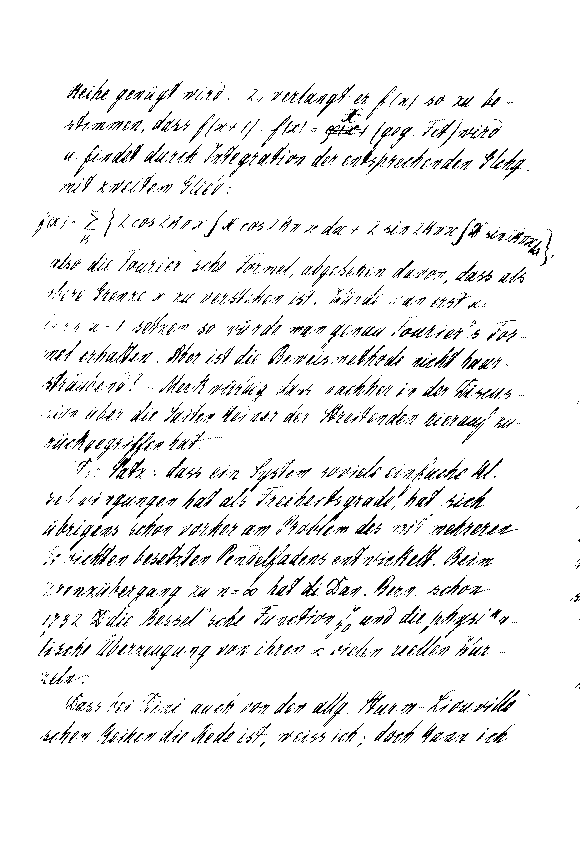 Reihe genügt wird. 2, verlangt er f(x) so zu be-
stimmen, dass f(x+1) - f(x) = X (geg. Fct) wird
u. findet durch Integration der entsprechenden Glchg.
mit zweitem Glied:
f(x) = Σ { 2 cos 2πnx ∫ X cos 2πnx dx + 2 sin 2πnx ∫ X sin 2πnx dx },
also die Fourier'sche Formel, abgesehen davon, dass als
obere Grenze x zu verstehen ist. Würde man erst
x = 1 setzen so würde man genau Fourier's For-
mel erhalten. Aber ist die Beweismethode nicht haar-
sträubend? - Merkwürdig dass nachher in der Discus-
sion über die Saiten keiner der Streitenden hierauf zu-
rückgegriffen hat.
Der Satz: dass ein System soviele einfache Kl.
schwingungen hat als Freiheitsgrade, hat sich
übrigens schon vorher am Problem des mit mehreren
Gewichten besetzten Pendelfadens entwickelt. Beim
Grenzübergang zu n=∞ hat da Dan. Bern. schon
1732 die Bessel'sche Function und die physika-
lische Überzeugung von ihren ∞ vielen reellen Wur-
zeln.
Dass bei Dini auch von den allg. Sturm-Liouville
schen Reihen die Rede ist, weiss ich; doch kann ich